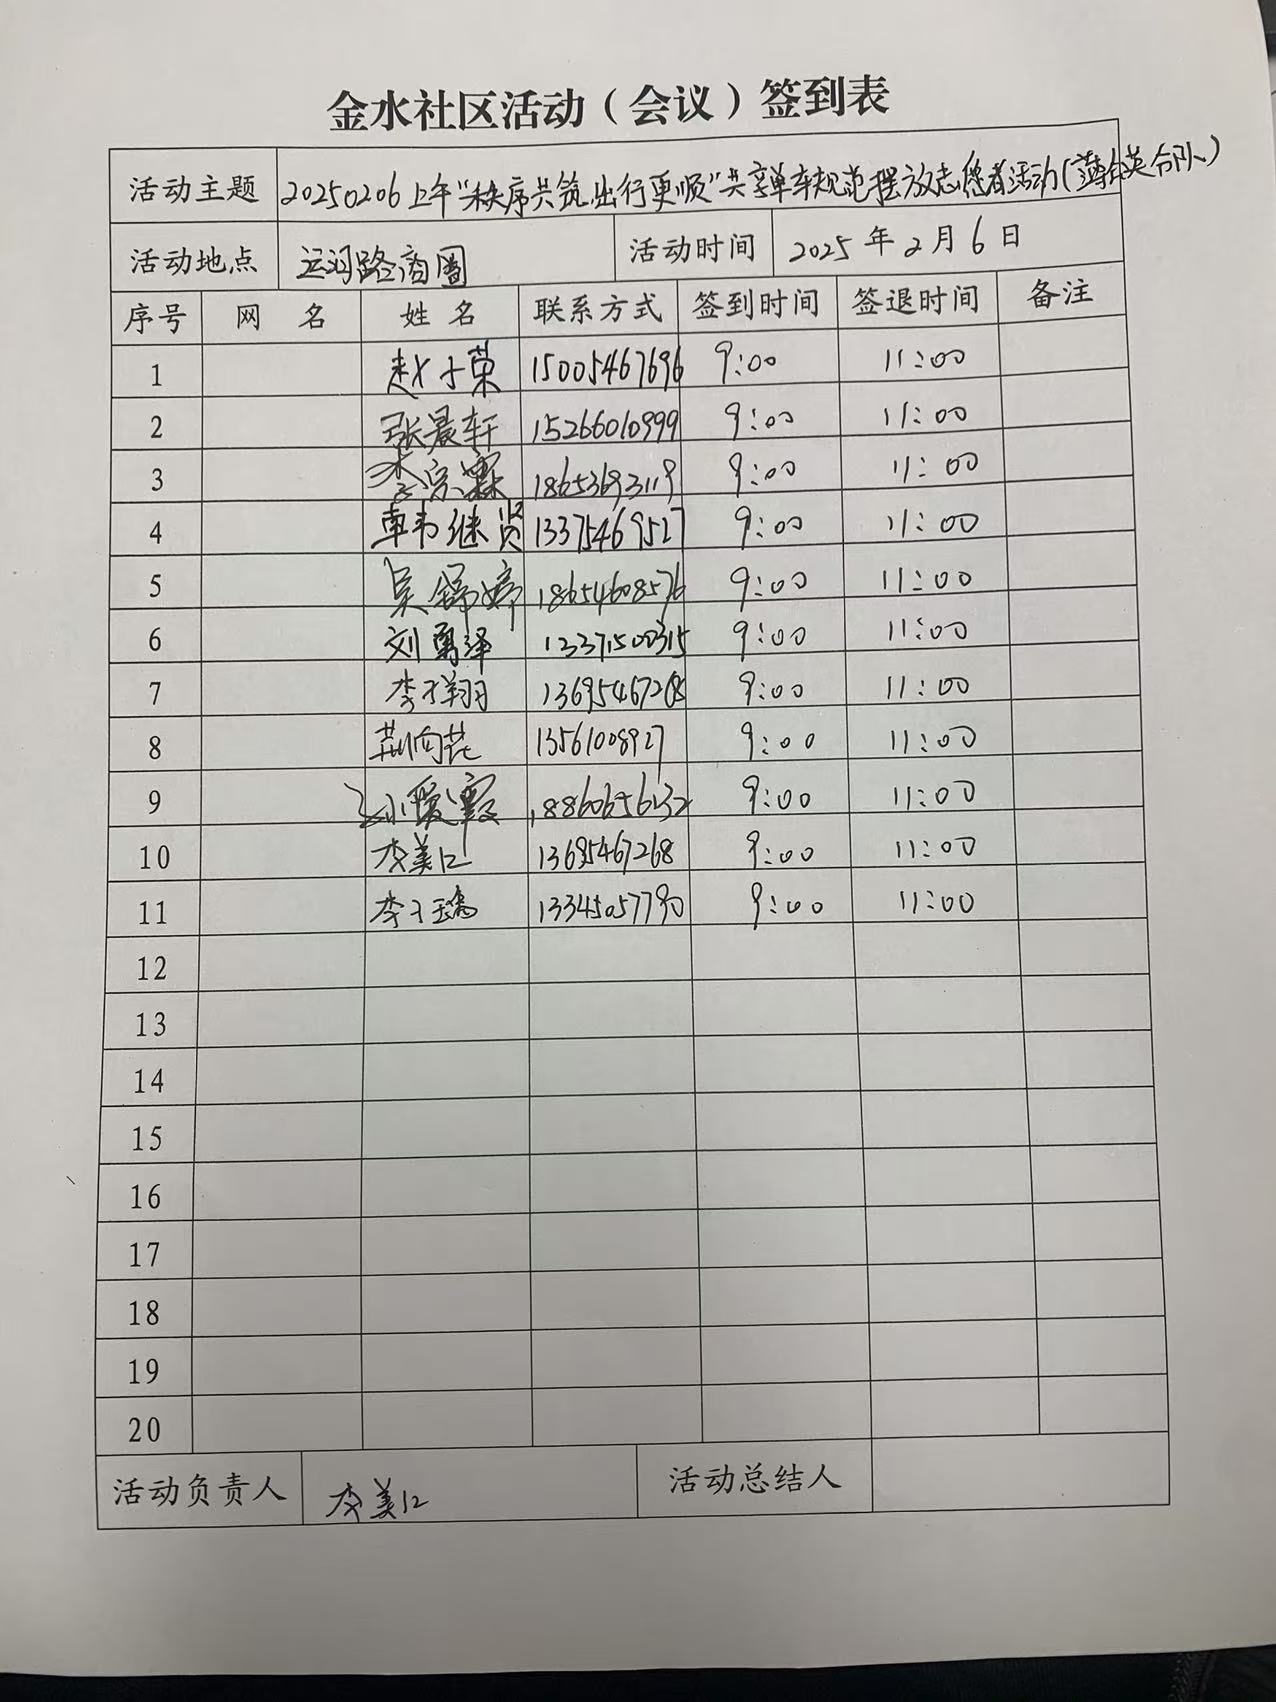 金水社区活动（会议）签到表
活动主题 20250206上午"秩序共筑 出行更顺"共享单车规范摆放志愿者活动(合队)
活动地点 运河路商圈 活动时间 2025年2月6日
序号 网 名 姓 名 联系方式 签到时间 签退时间 备注
1 赵小荣 15005467696 9:00 11:00
2 张晨轩 15266010999 9:00 11:00
3 李宗霖 18653693119 9:00 11:00
4 韩继贤 13375469527 9:00 11:00
5 吴婷 18654608576 9:00 11:00
6 刘勇泽 13371500315 9:00 11:00
7 李翔 13695467268 9:00 11:00
8 荆向花 13561008927 9:00 11:00
9 孙爱霞 18860656132 9:00 11:00
10 李美江 13695467268 9:00 11:00
11 李 13345057790 9:00 11:00
12
13
14
15
16
17
18
19
20
活动负责人 李美江 活动总结人